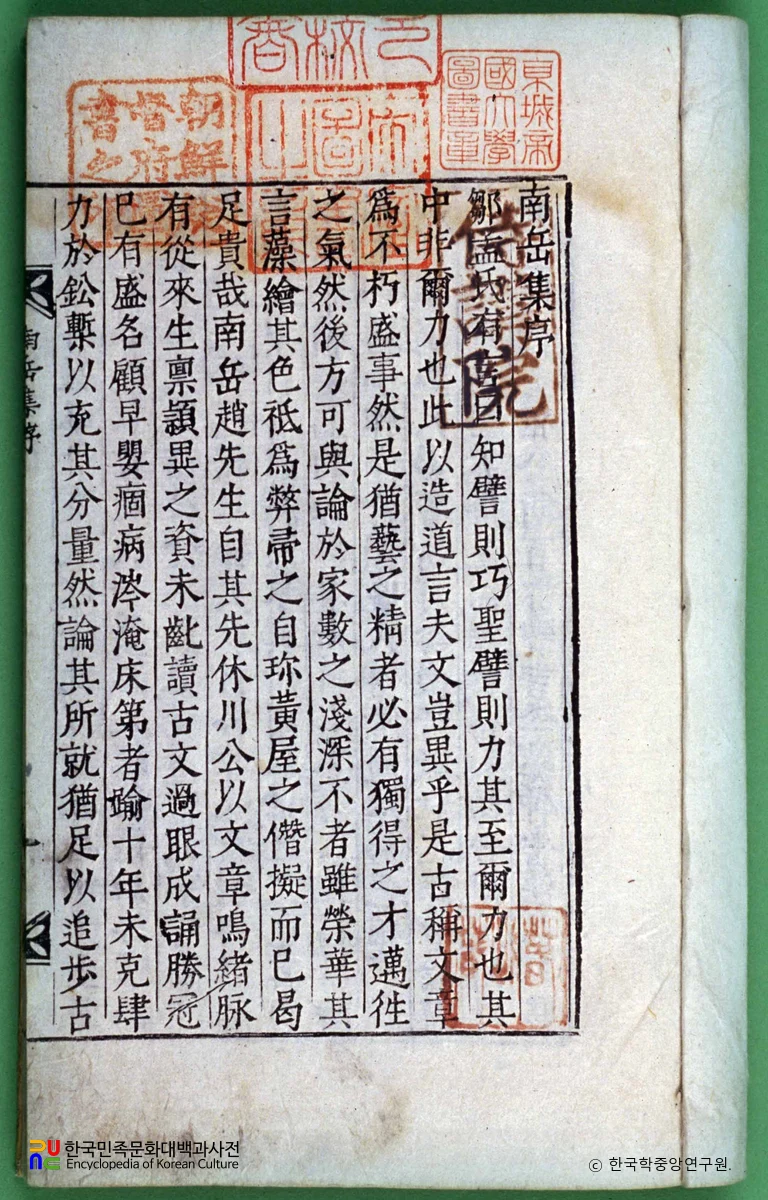 南岳集序
鄒孟氏有言曰知譬則巧聖譬則力其至爾力也其
中非爾力也此以造道言夫文豈異乎是古稱文章
爲不朽盛事然是猶藝之精者必有獨得之才邁徃
之氣然後方可與論於家數之淺深不者雖榮華其
言藻繪其色祗爲弊帚之自珎黃屋之僭擬而已曷
足貴哉南岳趙先生自其先休川公以文章鳴緖脉
有從來生禀頴異之資未齔讀古文過眼成誦勝冠
已有盛名顧早嬰痼病涔淹床第者踰十年未克肆
力於鈆槧以充其分量然論其所就猶足以追步古
南岳集序
朝鮮
督府
書之
京城帝
國大學
圖書章
한국민족문화대백과사전
Encyclopedia of Korean Culture
© 한국학중앙연구원.